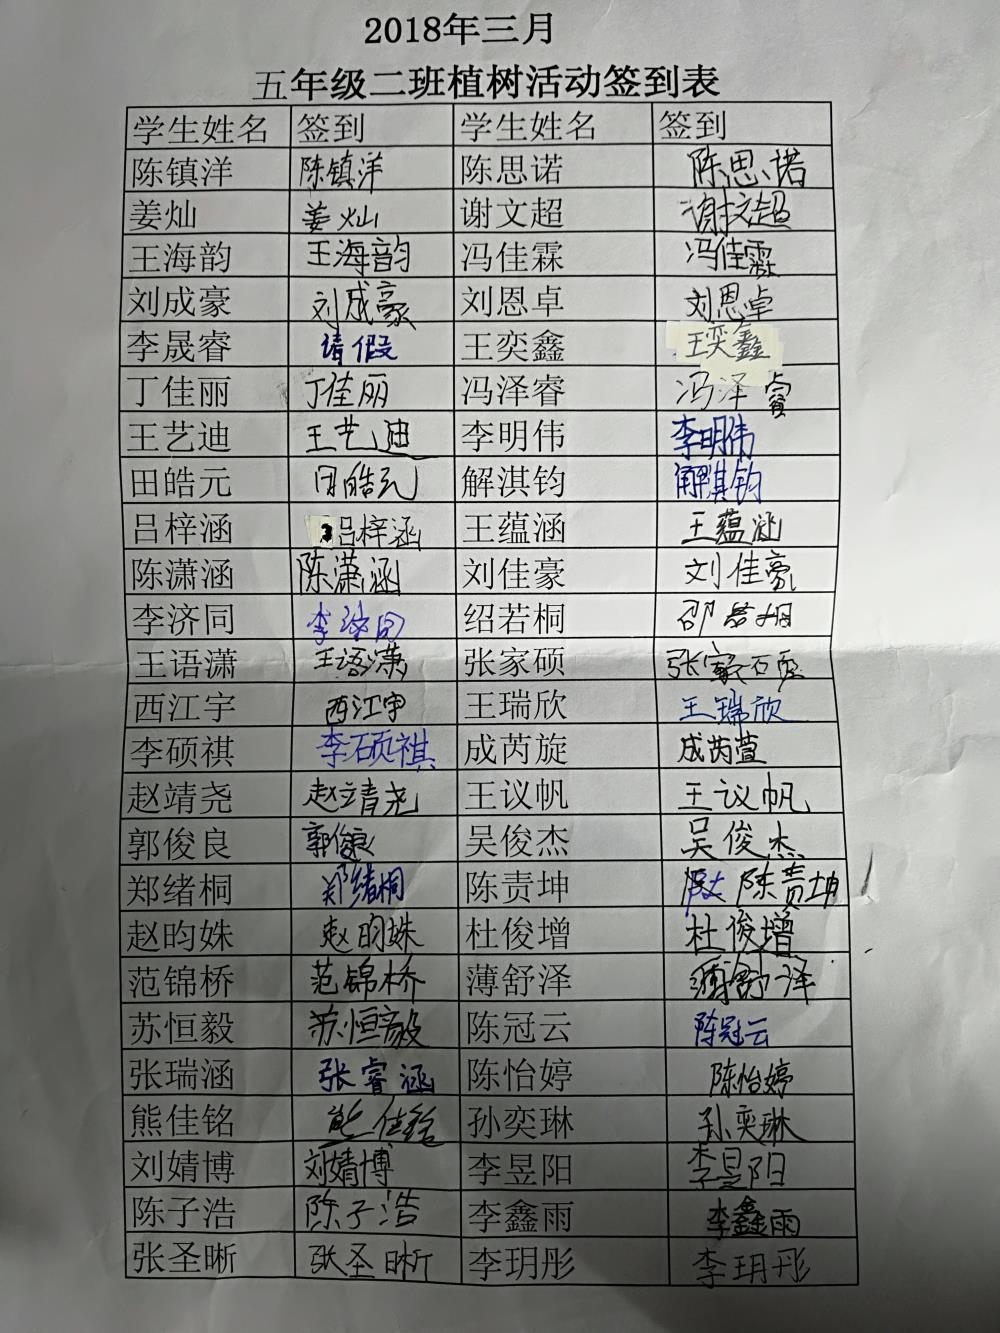 2018年三月
五年级二班植树活动签到表
学生姓名 签到 学生姓名 签到
陈镇洋 陈镇洋 陈思诺 陈思诺
姜灿 姜灿 谢文超 谢文超
王海韵 王海韵 冯佳霖 冯佳霖
刘成豪 刘成豪 刘恩卓 刘恩卓
李晟睿 请假 王奕鑫 王奕鑫
丁佳丽 丁佳丽 冯泽睿 冯泽睿
王艺迪 王艺迪 李明伟 李明伟
田皓元 田皓元 解淇钧 解淇钧
吕梓涵 吕梓涵 王蕴涵 王蕴涵
陈潇涵 陈潇涵 刘佳豪 刘佳豪
李济同 李济同 绍若桐 邵若桐
王语潇 王语潇 张家硕 张家硕
西江宇 西江宇 王瑞欣 王瑞欣
李硕祺 李硕祺 成芮旋 成芮萱
赵靖尧 赵靖尧 王议帆 王议帆
郭俊良 郭俊良 吴俊杰 吴俊杰
郑绪桐 郑绪桐 陈责坤 陈责坤
赵昀姝 赵昀姝 杜俊增 杜俊增
范锦桥 范锦桥 薄舒泽 薄舒泽
苏恒毅 苏恒毅 陈冠云 陈冠云
张瑞涵 张睿涵 陈怡婷 陈怡婷
熊佳铭 熊佳铭 孙奕琳 孙奕琳
刘婧博 刘婧博 李昱阳 李昱阳
陈子浩 陈子浩 李鑫雨 李鑫雨
张圣晰 张圣晰 李玥彤 李玥彤